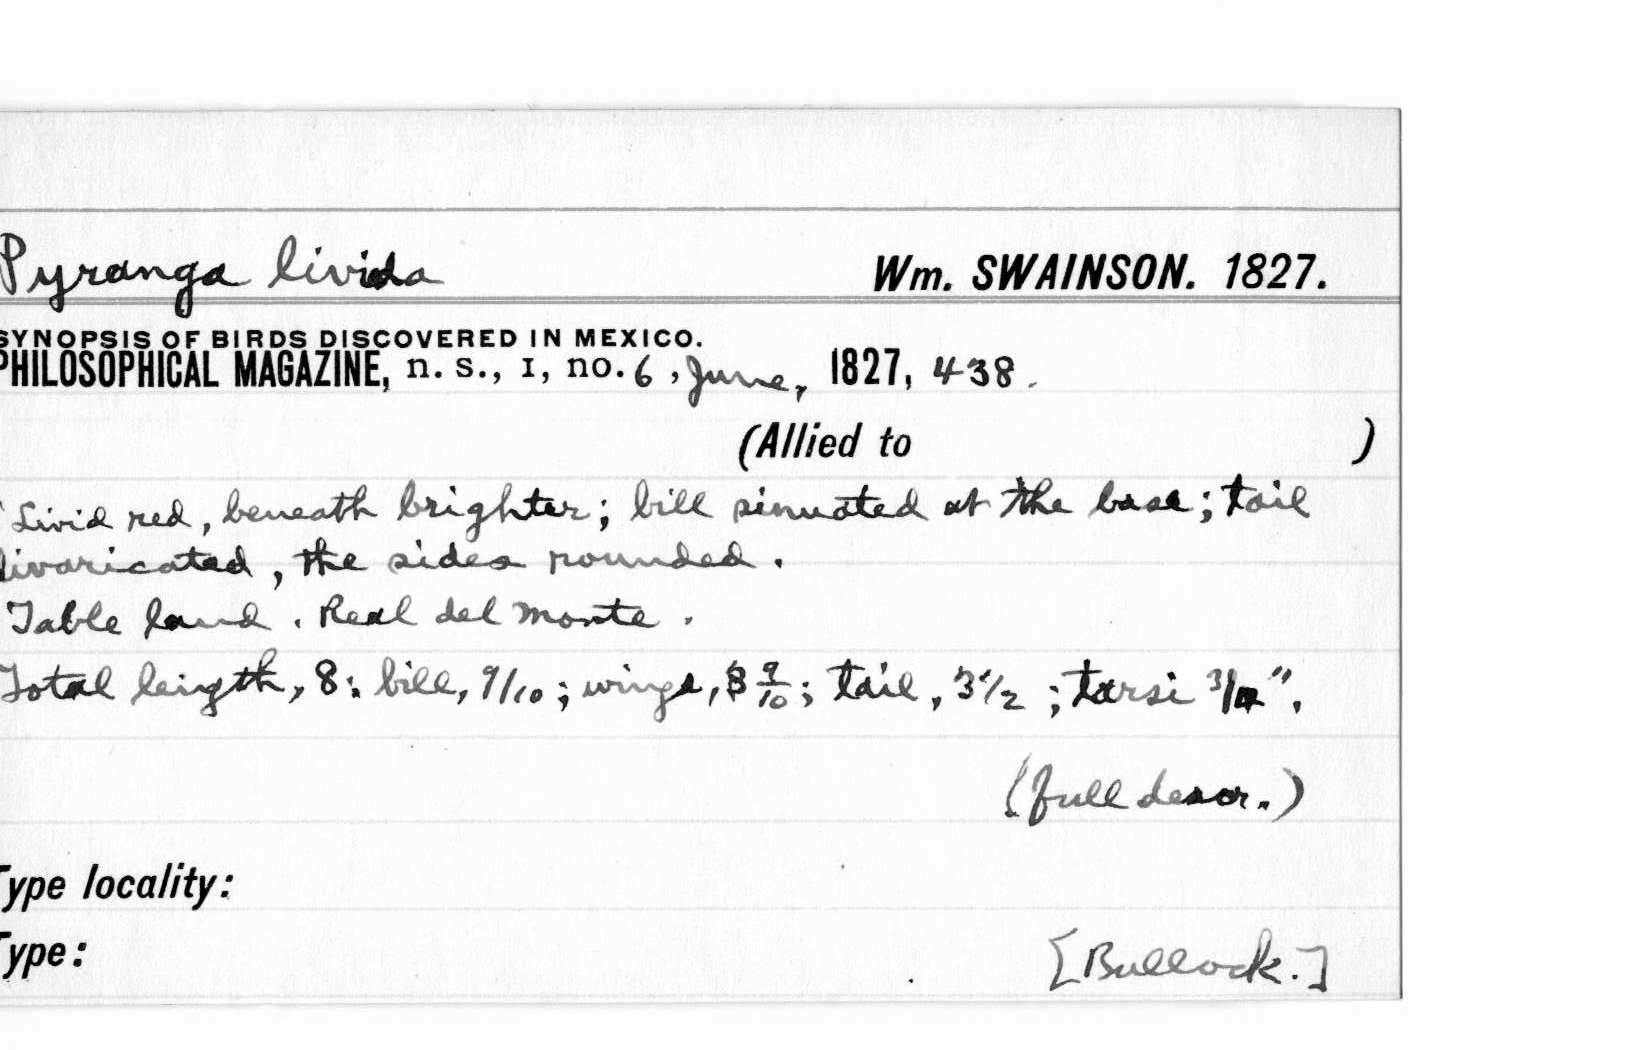 Pyranga livida Wm. SWAINSON. 1827.
SYNOPSIS OF BIRDS DISCOVERED IN MEXICO.
PHILOSOPHICAL MAGAZINE, n. s., I, no. 6, June, 1827, 438.
(Allied to )
"Livid red, beneath brighter; bill sinuated at the base; tail
divaricated, the sides rounded.
Table land. Real del Monte.
Total length, 8; bill, 9/10; wings, 3 9/10; tail, 3 1/2; tarsi 3/4".
(full descr.)
Type locality:
Type: [Bullock.]